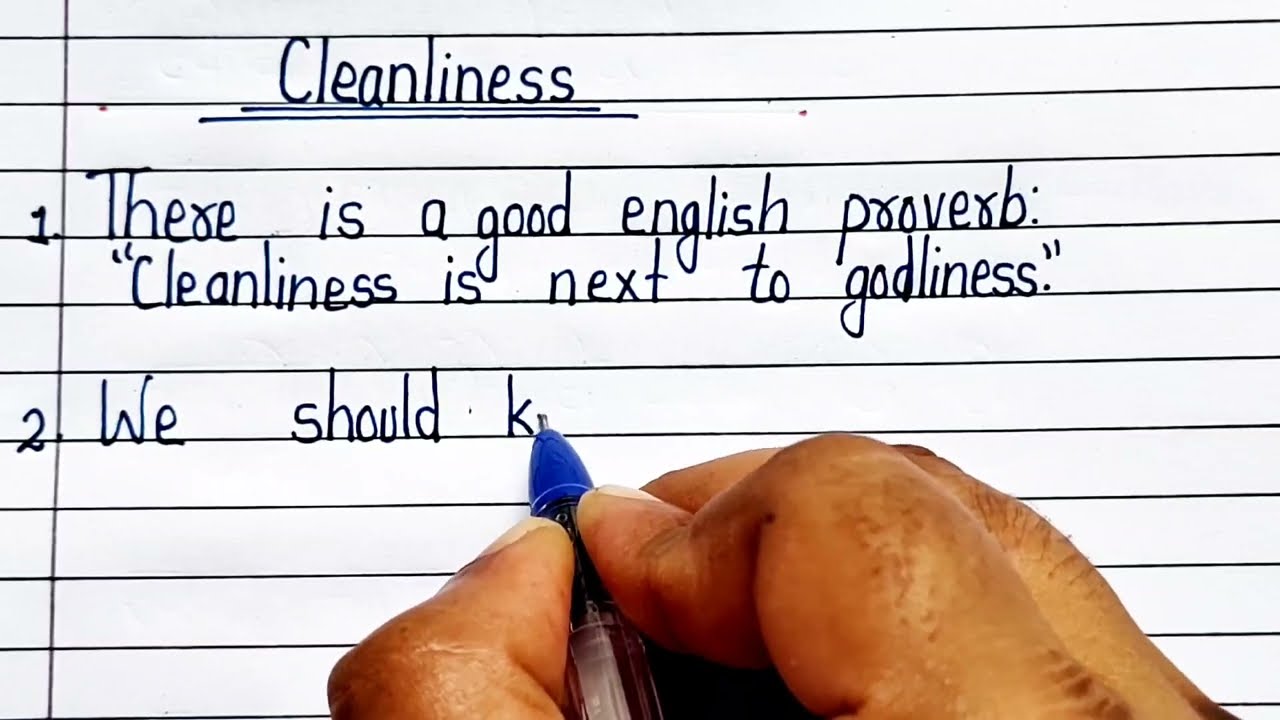 Cleanliness
1. There is a good english proverb:
"Cleanliness is next to godliness."
2. We should k